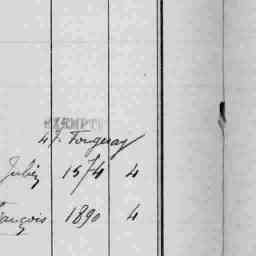 EXEMPTÉ
47. Fougeray
Julien 1574 4
François 1890 4